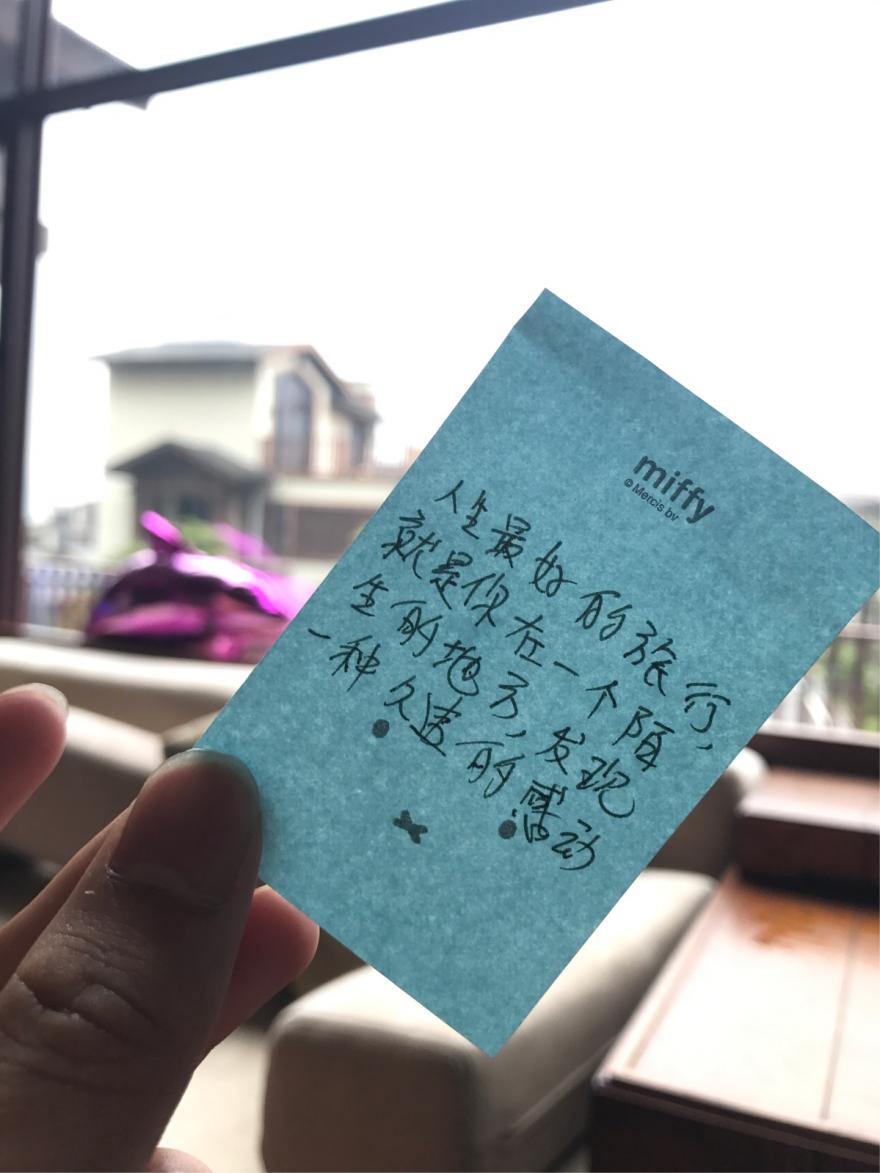 miffy
© Mercis bv
人生最好的旅行,
就是你在一个陌
生的地方,发现
一种久违的感动